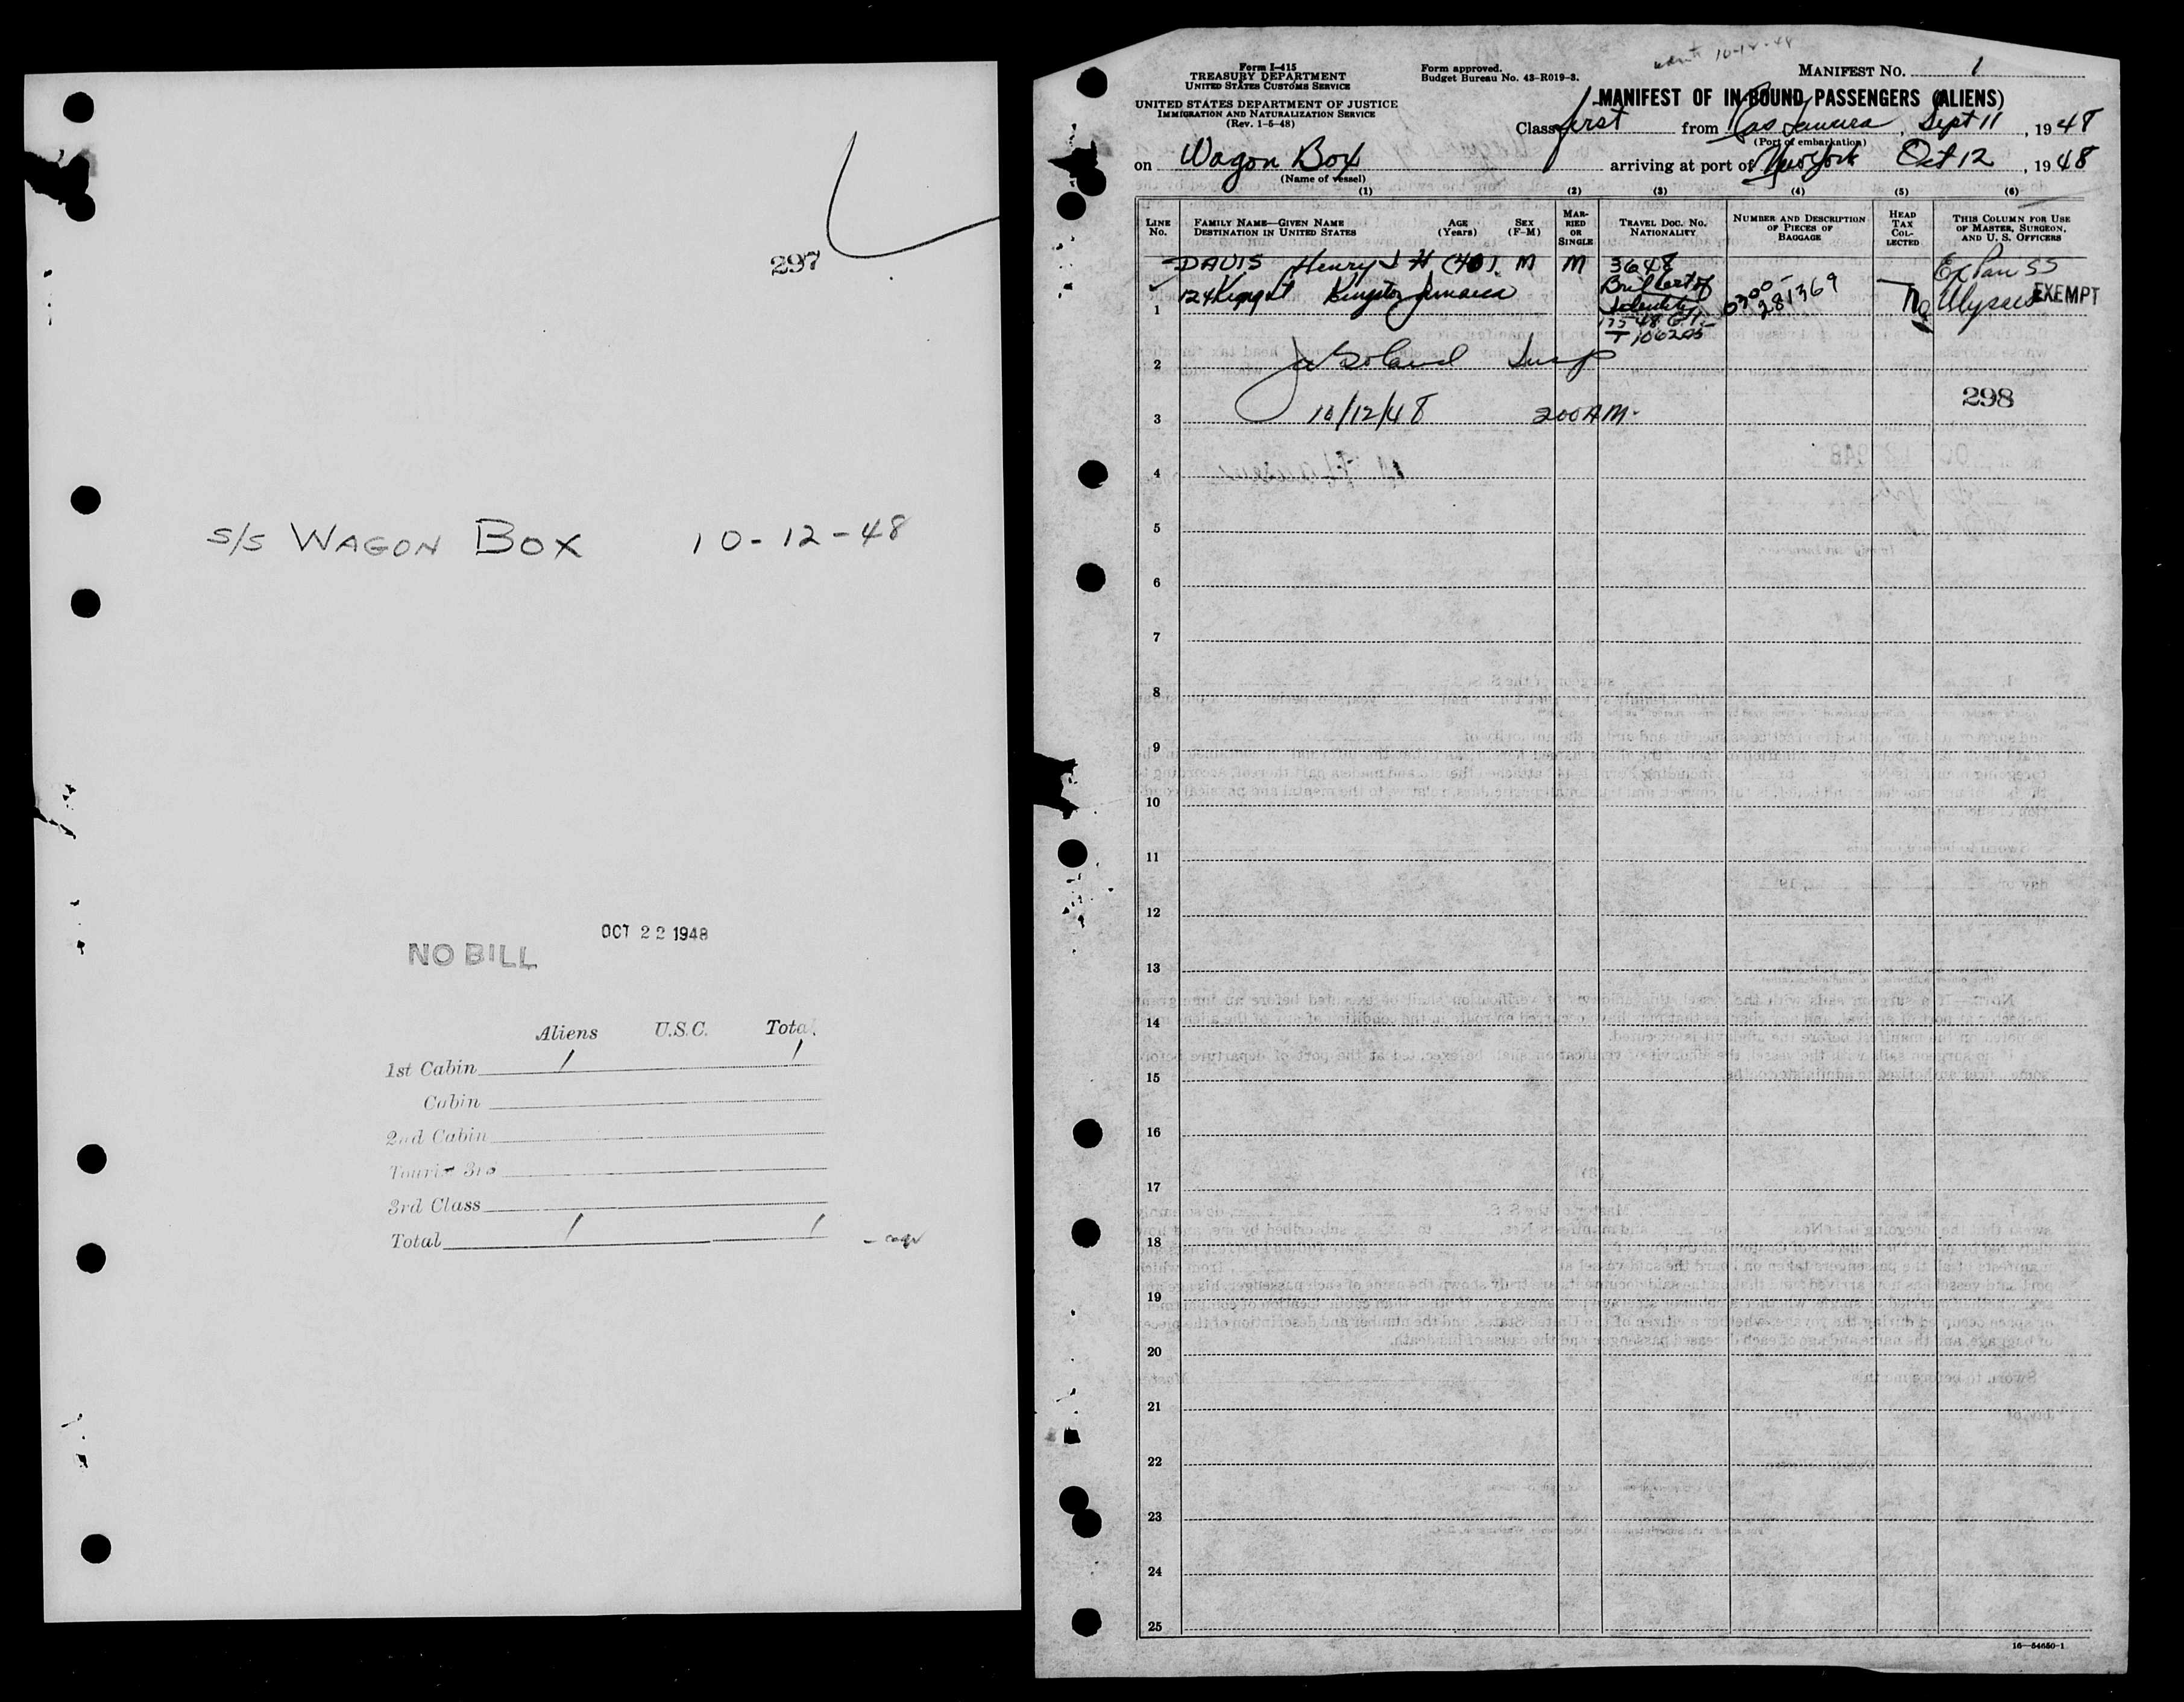 297
S/S WAGON BOX 10-12-48
OCT 22 1948
NO BILL
Aliens U.S.C. Total
1st Cabin 1 1
Cabin
2nd Cabin
Tourist 3rd
3rd Class
Total 1 1
10-12-48
Form I-415
TREASURY DEPARTMENT
UNITED STATES CUSTOMS SERVICE
UNITED STATES DEPARTMENT OF JUSTICE
IMMIGRATION AND NATURALIZATION SERVICE
(Rev. 1-5-48)
Form approved.
Budget Bureau No. 43-R019-3.
MANIFEST NO. 1
MANIFEST OF IN-BOUND PASSENGERS (ALIENS)
Class first from Ras Tanura, Sept 11, 1948
(Port of embarkation)
on Wagon Box arriving at port of New York Oct 12, 1948
(Name of vessel)
(1) (2) (3) (4) (5) (6)
LINE No. FAMILY NAME—GIVEN NAME DESTINATION IN UNITED STATES AGE (Years) SEX (F-M) MARRIED OR SINGLE TRAVEL DOC. NO. NATIONALITY NUMBER AND DESCRIPTION OF PIECES OF BAGGAGE HEAD TAX COLLECTED THIS COLUMN FOR USE OF MASTER, SURGEON, AND U. S. OFFICERS
DAVIS Henry J H (40) M M 3648 Ex Pan SS
1 124 King St Kingston Jamaica Brit Cert of Identity 0300- 281369 No Ulysses EXEMPT
T 106205
2 Insp
298
3 10/12/48 200AM.
4
5
6
7
8
9
10
11
12
13
14
15
16
17
18
19
20
21
22
23
24
25
16—54650-1